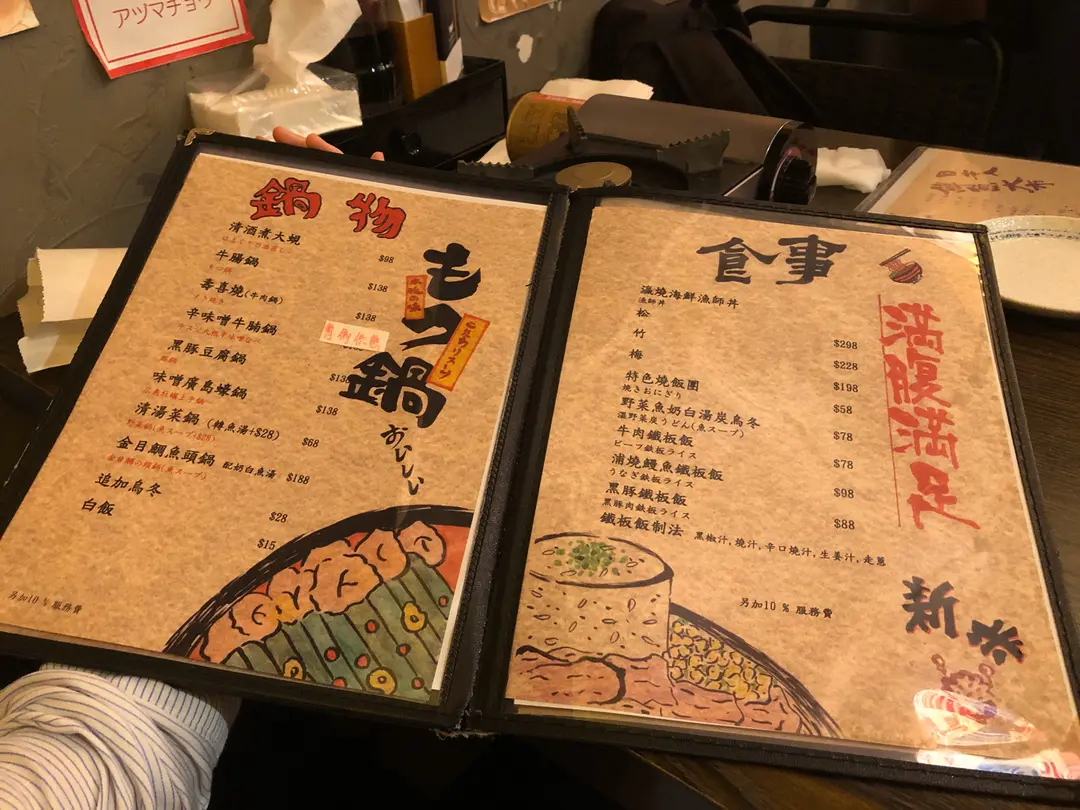 アツマチョウ
鍋物
清酒煮大蜆
$98
牛腸鍋
もつ鍋
$138
壽喜燒(牛肉鍋)
すき焼き
$138
辛味噌牛腩鍋
黑豚豆腐鍋
$138
味噌廣島蠔鍋
$138
清湯菜鍋 (轉魚湯+$28)
野菜鍋(魚スープ+$28)
$68
金目鯛魚頭鍋 配奶白魚湯 $188
追加烏冬
$28
白飯
$15
もつ鍋
おいしい
另加10 % 服務費
食事
瀛燒海鮮漁師丼
漁師丼
松
$298
竹
$228
梅
$198
特色燒飯團
焼きおにぎり
$58
野菜魚奶白湯炭烏冬
温野菜炭うどん(魚スープ)
$78
牛肉鐵板飯
ビーフ鉄板ライス
$78
蒲燒鰻魚鐵板飯
うなぎ鉄板ライス
$98
黑豚鐵板飯
黒豚肉鉄板ライス
$88
鐵板飯制法 黑椒汁,燒汁,辛口燒汁,生姜汁,走蔥
另加10 % 服務費
満腹満足
新米